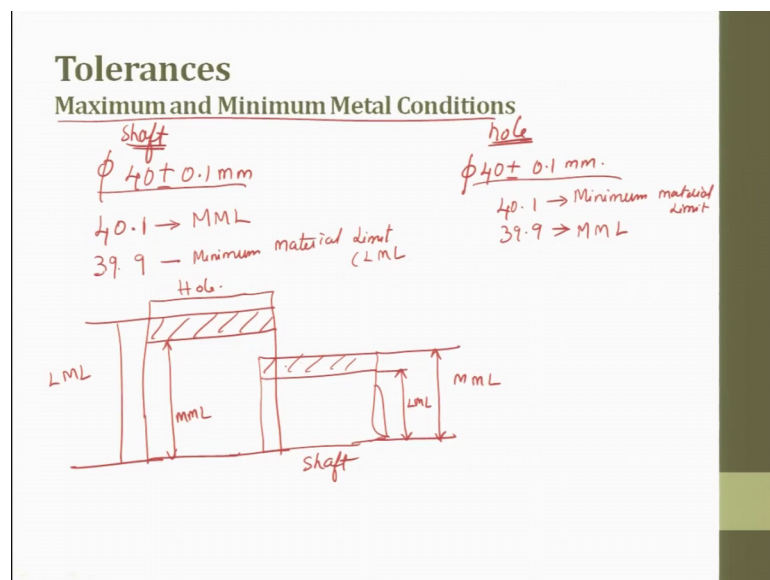 Tolerances
Maximum and Minimum Metal Conditions
shaft
ϕ 40 ± 0.1 mm
40.1 → MML
39.9 — Minimum material Limit
(LML
hole
ϕ 40 ± 0.1 mm.
40.1 → Minimum material
Limit
39.9 → MML
Hole.
LML
MML
LML
MML
shaft